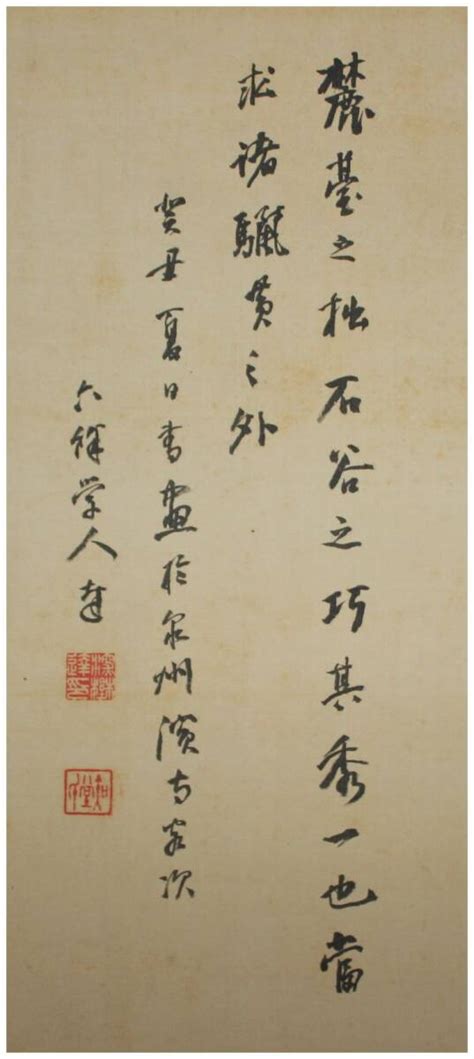 麓臺之拙石谷之巧其秀一也當
求諸驪黄之外
癸丑夏日書畫於泉州濱寺客次
学人達